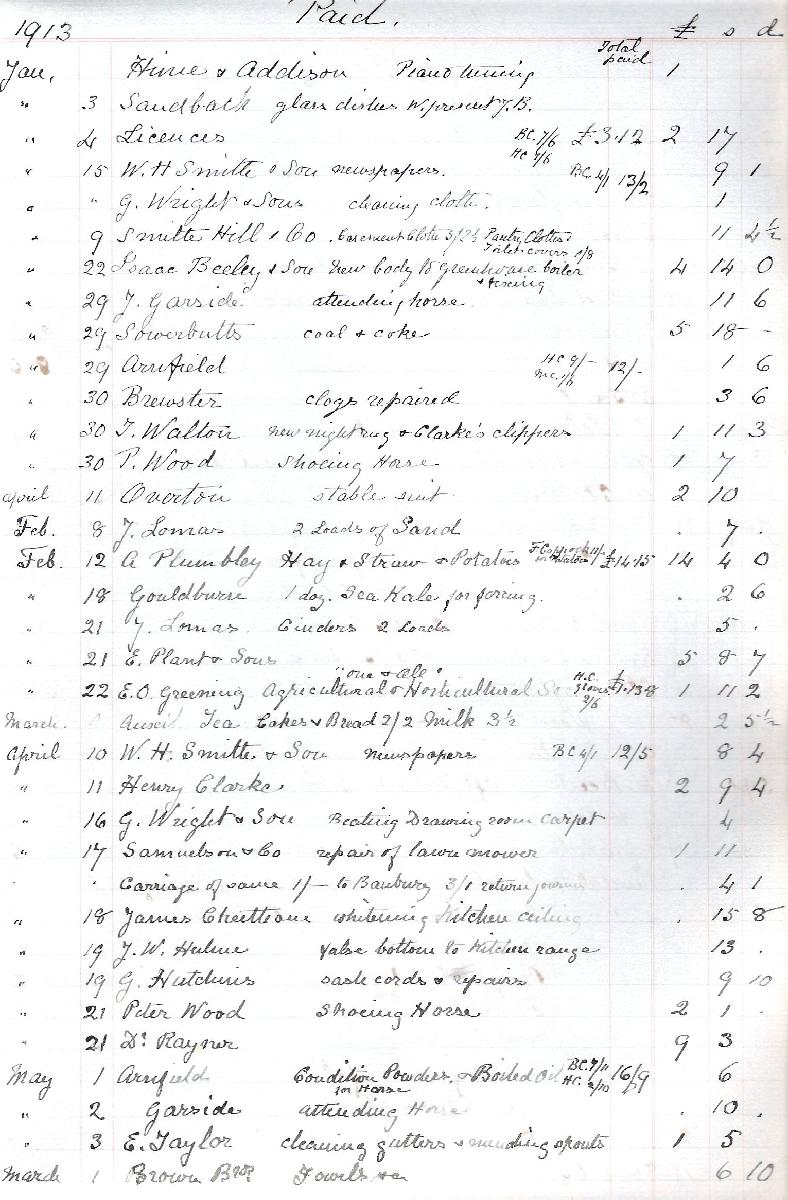 1913 Paid. £ s d
Jan, Hime & Addison Piano tuning Total paid 1
" 3 Sandback glass dishes W. present J.B.
" 4 Licences BC. 7/6 HC 7/6 £3.12 2 17
" 15 W. H Smith & Son newspapers. BC. 4/1 13/2 9 1
" " G. Wright & Sons cleaning cloth. 1
" 9 Smith Hill & Co Casement Cloth 3/2½ Pantry Cloths Toilet covers 1/8 11 4½
" 22 Isaac Beeley & Son New body to greenhouse boiler & fixing 4 14 0
" 29 J. Garside attending horse 11 6
" 29 Sowerbutts coal & coke 5 18 -
" 29 Arnfield HC 9/- MC. 1/6 12/- 1 6
" 30 Brewster clogs repaired 3 6
" 30 T. Walton new night rug & Clarke's clippers 1 11 3
" 30 P. Wood Shoeing Horse 1 7
April 11 Overton stable suit 2 10
Feb. 8 J. Lomas 2 Loads of Sand . 7 .
Feb. 12 A Plumbley Hay & Straw & Potatoes 11/- for £14.15 14 4 0
" 18 Gouldburn 1 doz. Sea Kale for forcing. . 2 6
" 21 J. Lomas. Cinders 2 Loads 5 .
" 21 E. Plant & Sons 5 8 7
" 22 E.O. Greening Agricultural & Horticultural So "one & all" H.C. gloves 2/6 £1.13.8 1 11 2
March. Tea Cakes & Bread 2/2 Milk 3½ 2 5½
April 10 W. H. Smith & Son newspapers BC 4/1 12/5 8 4
" 11 Henry Clarke 2 9 4
" 16 G. Wright & Son Beating Drawing room carpet 4
" 17 Samuelson & Co repair of lawn mower 1 11
" Carriage of same 1/- to Banbury 3/1 return journey . 4 1
" 18 James Cheetham whitening Kitchen ceiling . 15 8
" 19 J. W. Hulme false bottom to Kitchen range 13 .
" 19 G. Hutchins sash cords & repairs 9 10
" 21 Peter Wood Shoeing Horse 2 1 .
" 21 Dr. Rayner 9 3
May 1 Arnfield Condition Powders, & Boiled Oil for Horse BC. 7/11 HC. 2/10 16/9 6
" 2 Garside attending Horse . 10 .
" 3 E. Taylor cleaning gutters & mending spouts 1 5
March 1 Brown Bros Towels &c 6 10